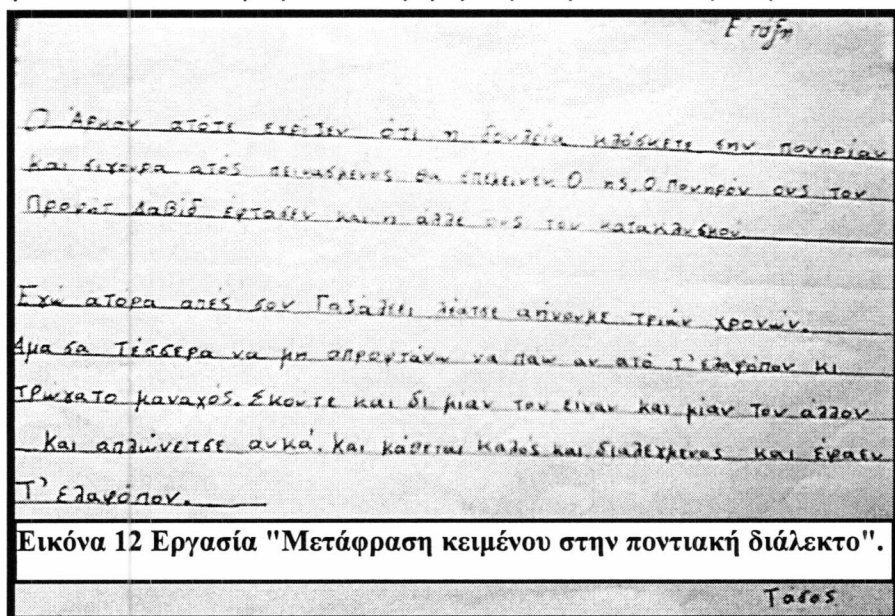 Ε' τάξη
Ο Άρκον ατότε εγρίξεν ότι η δουλεία κλόσκετε σην πονηρίαν
Και σίγουρα ατός πεινασμένος θα επέλεινεν. Ο ης, Ο πονηρόν ους τον
Προφήτ Δαβίδ έφτασεν και η άλλε ους τον κατακλυσμόν.
Εγώ ατορα απές σον Γαξάλεει λέατσε απήνουμε τριάν χρονών.
Αμα σα τέσσερα να μη απροφτάνω να πάω αν ατό τ' ελαφόπον κι
τρώγατο μαναχός. Σκουτε και δι μίαν τον είναν και μίαν τον αλλον
Και απλώνετσε αυκά. Και κάθεται καλός και διαλεχμένος και έφαεν
Τ' ελαφόπον.
Εικόνα 12 Εργασία "Μετάφραση κειμένου στην ποντιακή διάλεκτο".
Τάσος